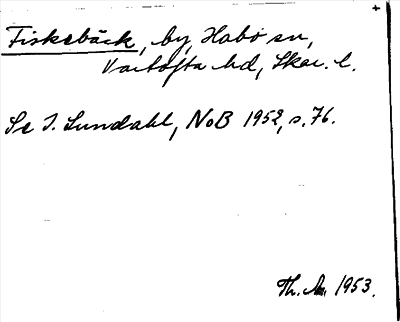 Fiskebäck, by, Habo sn,
Vartofta hd, Skar. l.
Se I. Lundahl, NoB 1952, s. 76.
Th. 1953.